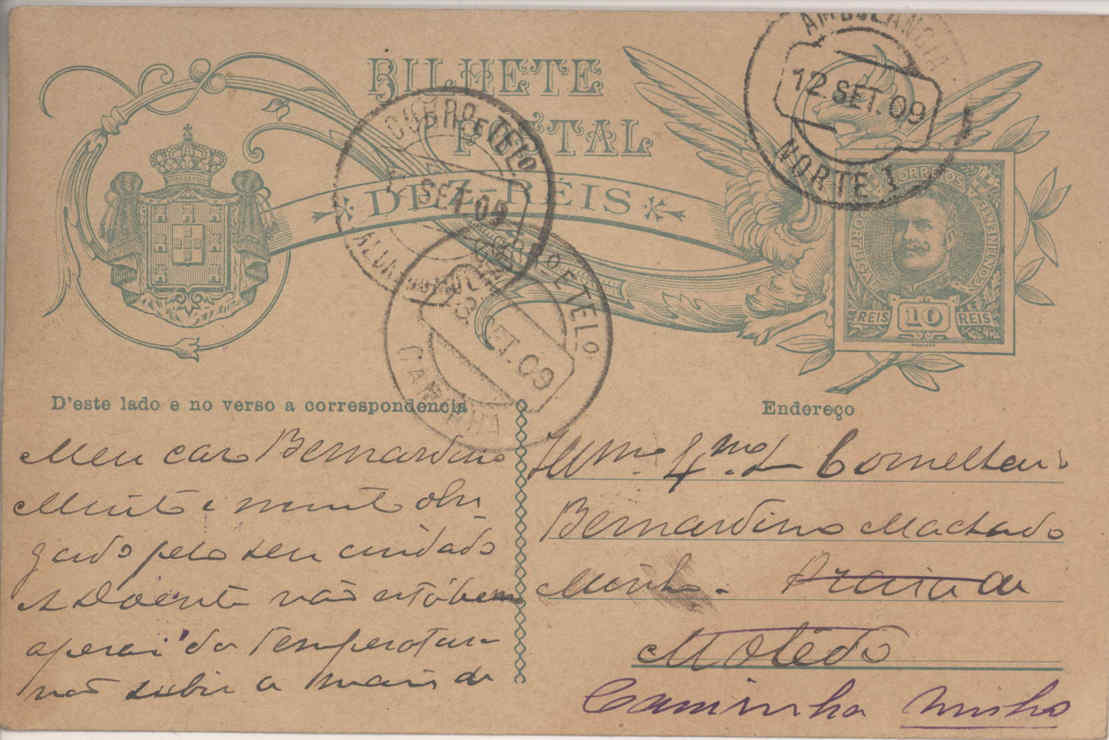 BILHETE
POSTAL
DEZ RÉIS
CORREIO E TELO
SET. 09
CORREIO E TELO
SET. 09
CAMINHA
AMBULANCIA
12 SET. 09
NORTE I
CORREIOS
REIS 10 REIS
D'este lado e no verso a correspondencia
Endereço
Meu caro Bernardino
Muito e muito obri
gado pelo seu cuidado
A Doente não está bem
apesar da temperatura
não subir a mais de
Illmo Exmo Sr Conselheiro
Bernardino Machado
Minho. Praia de
Moledo
Caminha Minho